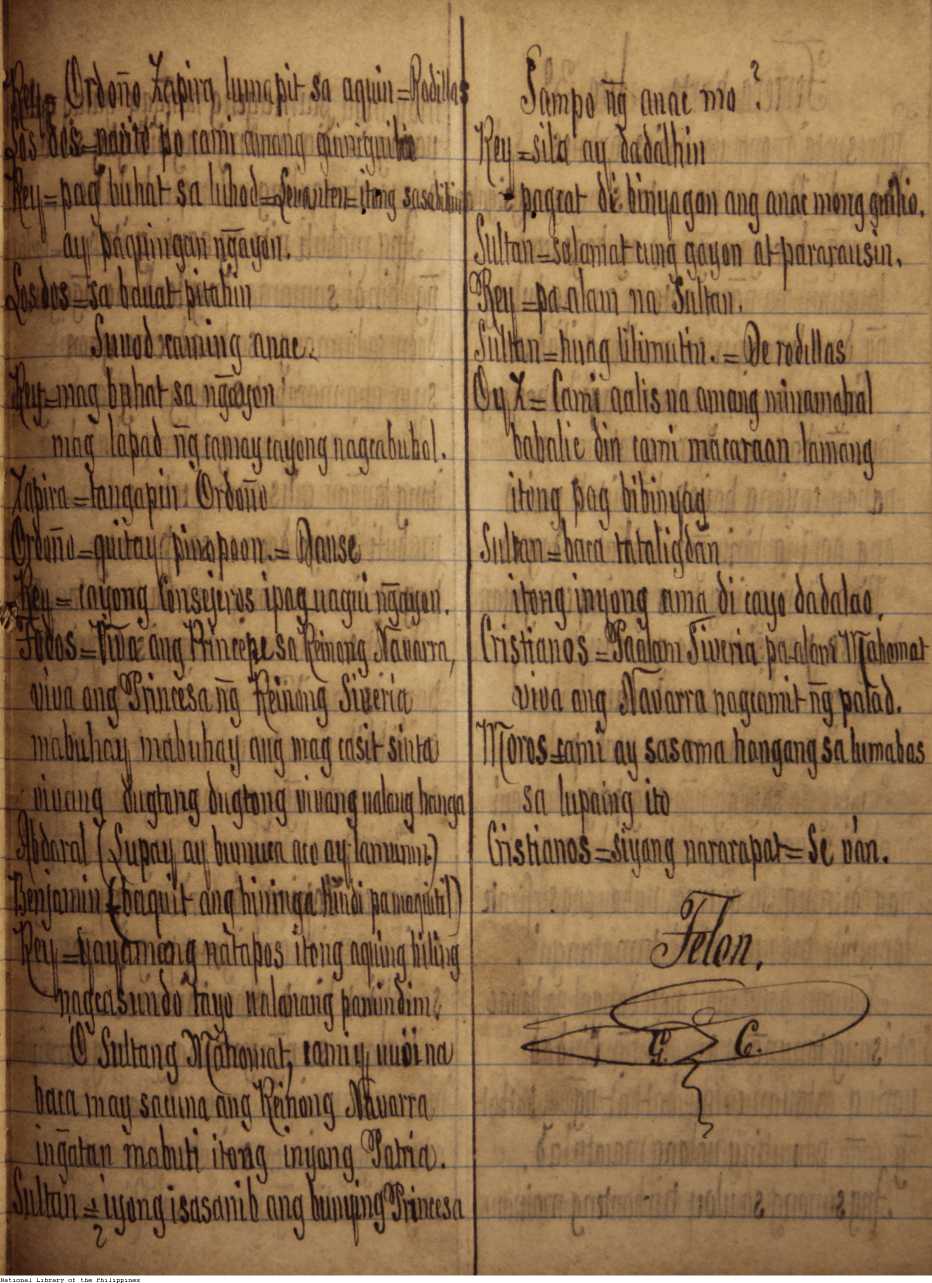 Rey= Ordoño Zapira lumapit sa aquin=Rodillas
Los dos=narito po cami amang
Rey=pag buhat sa luhod=Levanten=itong sasabihin
ay pagpiingan n͠gayon.
Los dos=sa bauat pitahin
Sunod caming anac.
Rey=mag buhat sa n͠gayon
mag lapad n͠g camay cayong nagcabuhol.
Zapira=tangapin Ordoño
Ordoño=guitay pinopoon.=Danse
Rey=cayong Consejeros ipag uagui n͠gayon.
Todos=Viva ang Principe sa Reinong Navarra,
viva ang Princesa n͠g Reinong Siveria
mabuhay, mabuhay ang mag casit sinta
vivang dugtong dugtong vivang ualang hanga
Abdaral (Lupay ay bumuca aco ay lamunin)
Benjamin (baquit ang hininga hindi pa magutil)
Rey=yayamang natapos itong aquing biling
nagcasundo tayo ualanang panimdim,
O Sultang Mahomat, cami y, uuöi na
baca may sacuna ang Reinong Navarra
in͠gatan mabuti itong inyong Patria.
Sultan=iyong isasanib ang bunying Princesa
2
Sampo n͠g anac mo?
Rey=sila ay dadalhin
pagcat di binyagan ang anac mong
Sultan=salamat cung gayon at pararausin.
Rey=pa-alam na Sultan.
Sultan=huag lilimutin.=De rodillas
O y Z=Cami aalis na amang minamahal
babalic din cami macaraan lamang
itong pag bibinyag
Sultan=baca tataligdan
itong inyong ama di cayo dadalao.
Cristianos=Paalam Siveria pa-alam Mahomat
viva ang Navarra nagcamit n͠g palad.
Moros=cami ay sasama hangang sa lumabas
sa lupaing ito
Cristianos=siyang nararapat=Se ván.
Telon.
G. C.
National Library of the Philippines